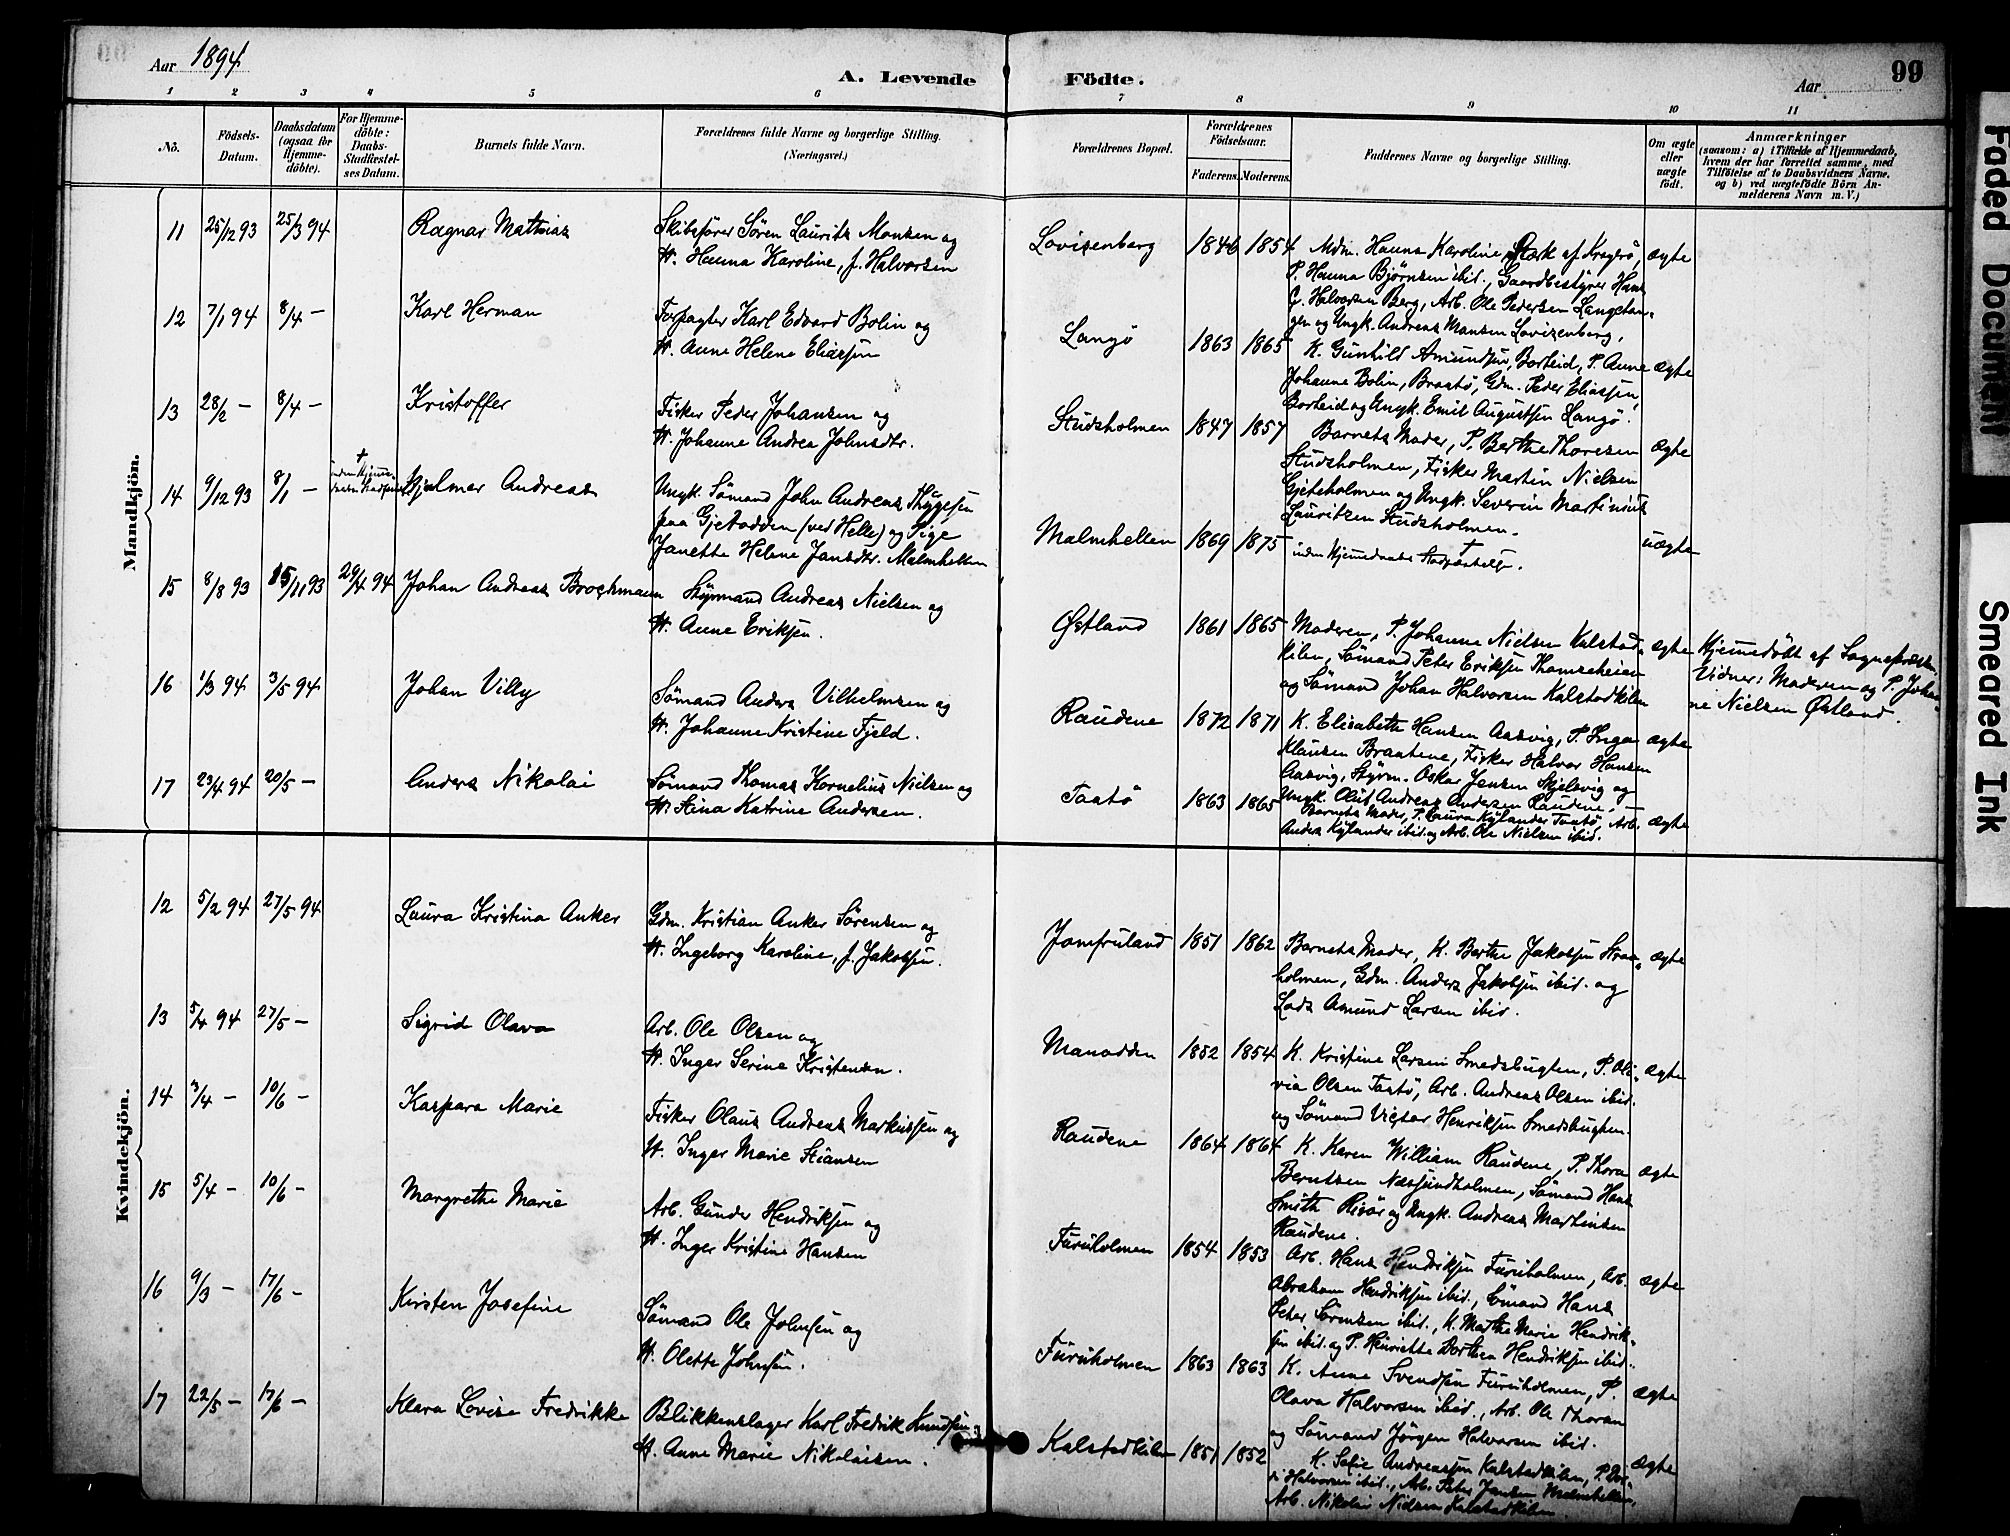 Aar 1894
A. Levende Födte.
Aar
99
1 2 3 4 5 6 7 8 9 10 11
No.
Födsels-Datum.
Daabsdatum (ogsaa for Hjemmedöbte).
For Hjemmedöbte: Daabs-Stadfæstelses Datum.
Barnets fulde Navn.
Forældrenes fulde Navne og borgerlige Stilling.
(Næringsvei.)
Forældrenes Bopæl.
Forældrenes Födselsaar.
Faderens. Moderens.
Faddernes Navne og borgerlige Stilling.
Om ægte eller uægte födt.
Anmærkninger
(saasom: a) i Tilfælde af Hjemmedaab,
hvem der har forrettet samme, med
Tilföielse af to Daabsvidners Navne.
og b) ved uægtefödte Börn An-
melderens Navn m. V.)
Mandkjön.
11 25/12 93 25/3 94 Ragnar Mathias
Skibsfører Sören Laurits Monsen og
H. Hanna Karoline, f. Halvorsen
Lovisenberg 1846 1854
Mdm. Hanna Karoline af Kragerø,
P. Hanna Bjørnsen ibid., Gaardbestyrer Hans
G. Halvorsen Berg, Arb. Ole Pedersen Langetan-
gen og Ungk. Andreas Monsen Lovisenberg.
ægte
12 7/1 94 8/4 – Karl Herman
Forpagter Karl Edvard Bolin og
H. Anne Helene Eliassen
Langö 1863 1865
K. Gunhild Amundsen, Borteid, P. Anne
Johanne Bolin, Braatö, Gdm. Peder Eliassen,
Borteid og Ungk. Emil Augustsen Langö.
ægte
13 28/2 – 8/4 – Kristoffer
Fisker Peder Johansen og
H. Johanne Andrea Johnsdtr.
Studsholmen 1847 1857
Barnets Moder, P. Berthe Thoresen
Studsholmen, Fisker Martin Nielsen
Gjeteholmen og Ungk. Severin Martinius
Lauritzen Studsholmen.
ægte
14 9/12 93 8/1 – † uden Hjemmedaabs Stadfæst. Hjalmar Andreas
Ungk. Sömand John Andreas Thygesen
paa Gjetodden (ved Helle) og Pige
Janette Helene Jansdtr. Malmhellen
Malmhellen 1869 1875
† uden Hjemmedaabs Stadfæstelse.
uægte
15 8/8 93 15/11 93 29/4 94 Johan Andreas Brochmann
Styrmand Andreas Nielsen og
H. Anne Eriksen.
Østland 1861 1865
Moderen, P. Johanne Nielsen Kalstad-
kilen, Sömand Peter Eriksen Thomasheien
og Sömand Johan Halvorsen Kalstadkilen
ægte
Hjemmedöbt af Sognepræsten
Vidner: Moderen og P. Johan-
ne Nielsen Østland.
16 1/3 94 3/5 94 Johan Villy
Sömand Anders Vilhelmsen og
H. Johanne Kristine Fjeld.
Raudene 1872 1871
K. Elisabeth Hansen Aasvig, P. Inga
Klausen Braatene, Fisker Halvor Hansen
Aasvig, Styrm. Oskar Jensen Skjelsvig og
Ungk. Oluf Andreas Andersen Raudene. –
ægte
17 23/4 94 20/5 – Anders Nikolai
Sömand Thomas Kornelius Nielsen og
H. Stina Katrine Andersen.
Taatö 1863 1865
Barnets Moder, P. Laura Kylander Taatö, Arb.
Anders Kylander ibid. og Arb. Ole Nielsen ibid.
ægte
Kvindekjön.
12 5/2 94 27/5 94 Laura Kristina Anker
Gdm. Kristian Anker Sörensen og
H. Ingeborg Karoline, f. Jakobsen.
Jomfruland 1851 1862
Barnets Moder, K. Berthe Jakobsen Straa-
holmen, Gdm. Anders Jakobsen ibid. og
Lods Amund Larsen ibid.
ægte
13 5/4 94 27/5 – Sigrid Olava
Arb. Ole Olsen og
H. Inger Serine Kristensen.
Manodden 1852 1854
K. Kristine Larsen Smedsbugten, P. Oli-
via Olsen Taatö, Arb. Andreas Olsen ibid.
og Sömand Victor Henriksen Smedsbugten.
ægte
14 3/4 – 10/6 – Kaspara Marie
Fisker Olaus Andreas Markussen og
H. Inger Marie Stiansen
Raudene 1864 1864
K. Karen William Raudene, P. Thora
Berntsen Næssundholmen, Sömand Hans
Smith Risör og Ungk. Andreas Martinsen
Raudene.
ægte
15 5/4 – 10/6 – Margrethe Marie
Arb. Gunder Hendriksen og
H. Inger Kristine Hansen
Furuholmen 1854 1853
Arb. Hans Hendriksen Furuholmen, Arb.
Abraham Hendriksen ibid., Sömand Hans
Peter Sörensen ibid., K. Marthe Marie Hendrik-
sen ibid. og P. Henriette Dorthea Hendriksen ibid.
ægte
16 9/3 – 17/6 – Kirsten Josefine
Sömand Ole Johnsen og
H. Olette Johnsen.
Furuholmen 1863 1863
K. Anne Svendsen Furuholmen, P.
Olava Halvorsen ibid., Arb. Ole Thoran
og Sömand Jörgen Halvorsen ibid.
ægte
17 22/5 – 17/6 – Klara Lovise Fredrikke
Blikkenslager Karl Fredrik Knudsen og
H. Anne Marie Nikolaisen.
Kalstadkilen 1851 1852
K. Sofie Andreassen Kalstadkilen, P.
Halvorsen ibid., Arb. Peter Jansen Malmhellen,
Arb. Nikolai Nielsen Kalstadkilen.
ægte
Faded Document
Smeared Ink